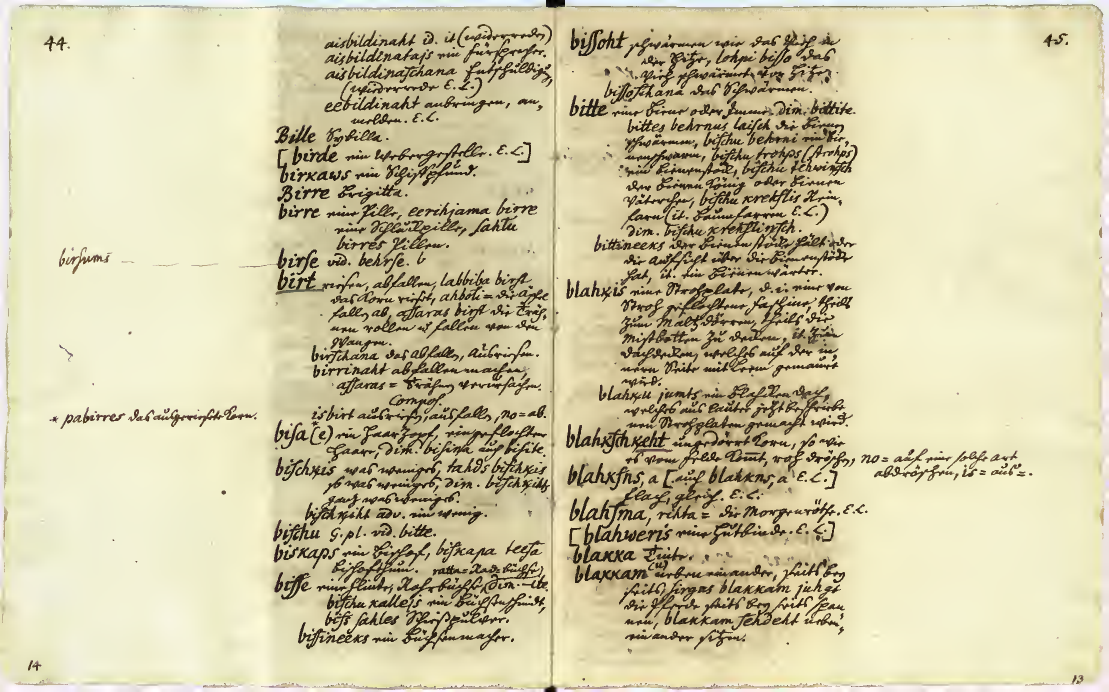 44.
aisbildinaht id. it (wiederreden)
aisbildinatajs ein Fürsprecher.
aisbildinaschana Entschuldig.
(wiederrede E. L.)
eebildinaht anbringen, an,
melden. E. L.
Bille Sybilla.
[birde ein Webergestelle. E. L.]
birkaws ein Schifpfund.
Birre Brigitta.
birre eine Pille, eerihjama birre
eine Schluckpille, sahlu
birres Pillen.
birse vid. behrse. b
birsums
birt riesen, abfallen, labbiba birst
das Korn rieset, ahboli = die Äpfel
fallen ab, assaras birst die Träh,
nen rollen u fallen von den
Wangen.
birschana das abfall, Ausriesen.
birrinaht abfallen machen,
assaras = Trähen verursachen.
Compos.
isbirt ausriesen, ausfallen, no = ab.
* pabirres das ausgerieste Korn.
bise (e) ein Haarzopf, eingeflochten
Haare, dim. bisina auch bisite.
bischkis was weniges, tahds bischkis
so was weniges, dim. bischkihts
ganz was weniges.
bischkiht adv. ein wenig.
bischu G. pl. vid. bitte.
biskaps ein Bischof, biskapa teesa
Bischofthum. ratta = Radebüchse,
bisse eine Flinte, Rohrbüchse, dim. — ite.
bischu kallejs ein Büchsenschmidt,
biss sahles Schießpulver.
bissineeks ein Büchsenmacher.
14
45.
bissoht schwärmen wie das Vieh in
der Hitze, lohpi bisso das
Vieh schwärmet vor Hitze.
bissoschana das Schwärmen.
bitte eine Biene oder Imme. dim. bittite.
bittes behrnus laisch die Bienen
schwärmen, bischu behrni ein Bie,
nenschwarm, bischu trohps (strohps)
ein Bienenstock, bischu tehwinsch
der Bienen König oder Bienen
Väterchen, bischu krehslis Rein,
farn (it. Baumfarren E. L.)
dim. bischu krehslinsch.
bittineeks der Bienenstöcke hält oder
die Aufsicht über die Bienenstöcke
hat, it. ein Bienenwärter.
blahkis eine Strohplate, d. i. eine von
Stroh geflochtene Faschine, theils
zum Maltzdörren, theils die
Mistbetten zu decken, it. zum
Dachdecken, welches auf der in,
nern Seite mit Leem gemauert
wird.
blahku jumts ein Blahken Dach,
welches aus lauter jetzt beschriebe,
nen Strohplaten gemacht wird.
blahkschkeht ungedörrt Korn, so wie
es vom Felde komt, roh dröschen, no = auf eine solche Art
abdröschen, is = aus =.
blahksns, a [auch blahkns, a E. L.]
flach, gleich. E. L.
blahsma, rihta = die Morgenröthe. E. L.
[blahweris eine Hutbinde. E. L.]
blakka Tinte.
blakkam (u) neben einander, seits bey
seits, sirgus blakkam juhgt
die Pferde seits bey seits span
nen, blakkam sehdeht neben,
einander sitzen.
13